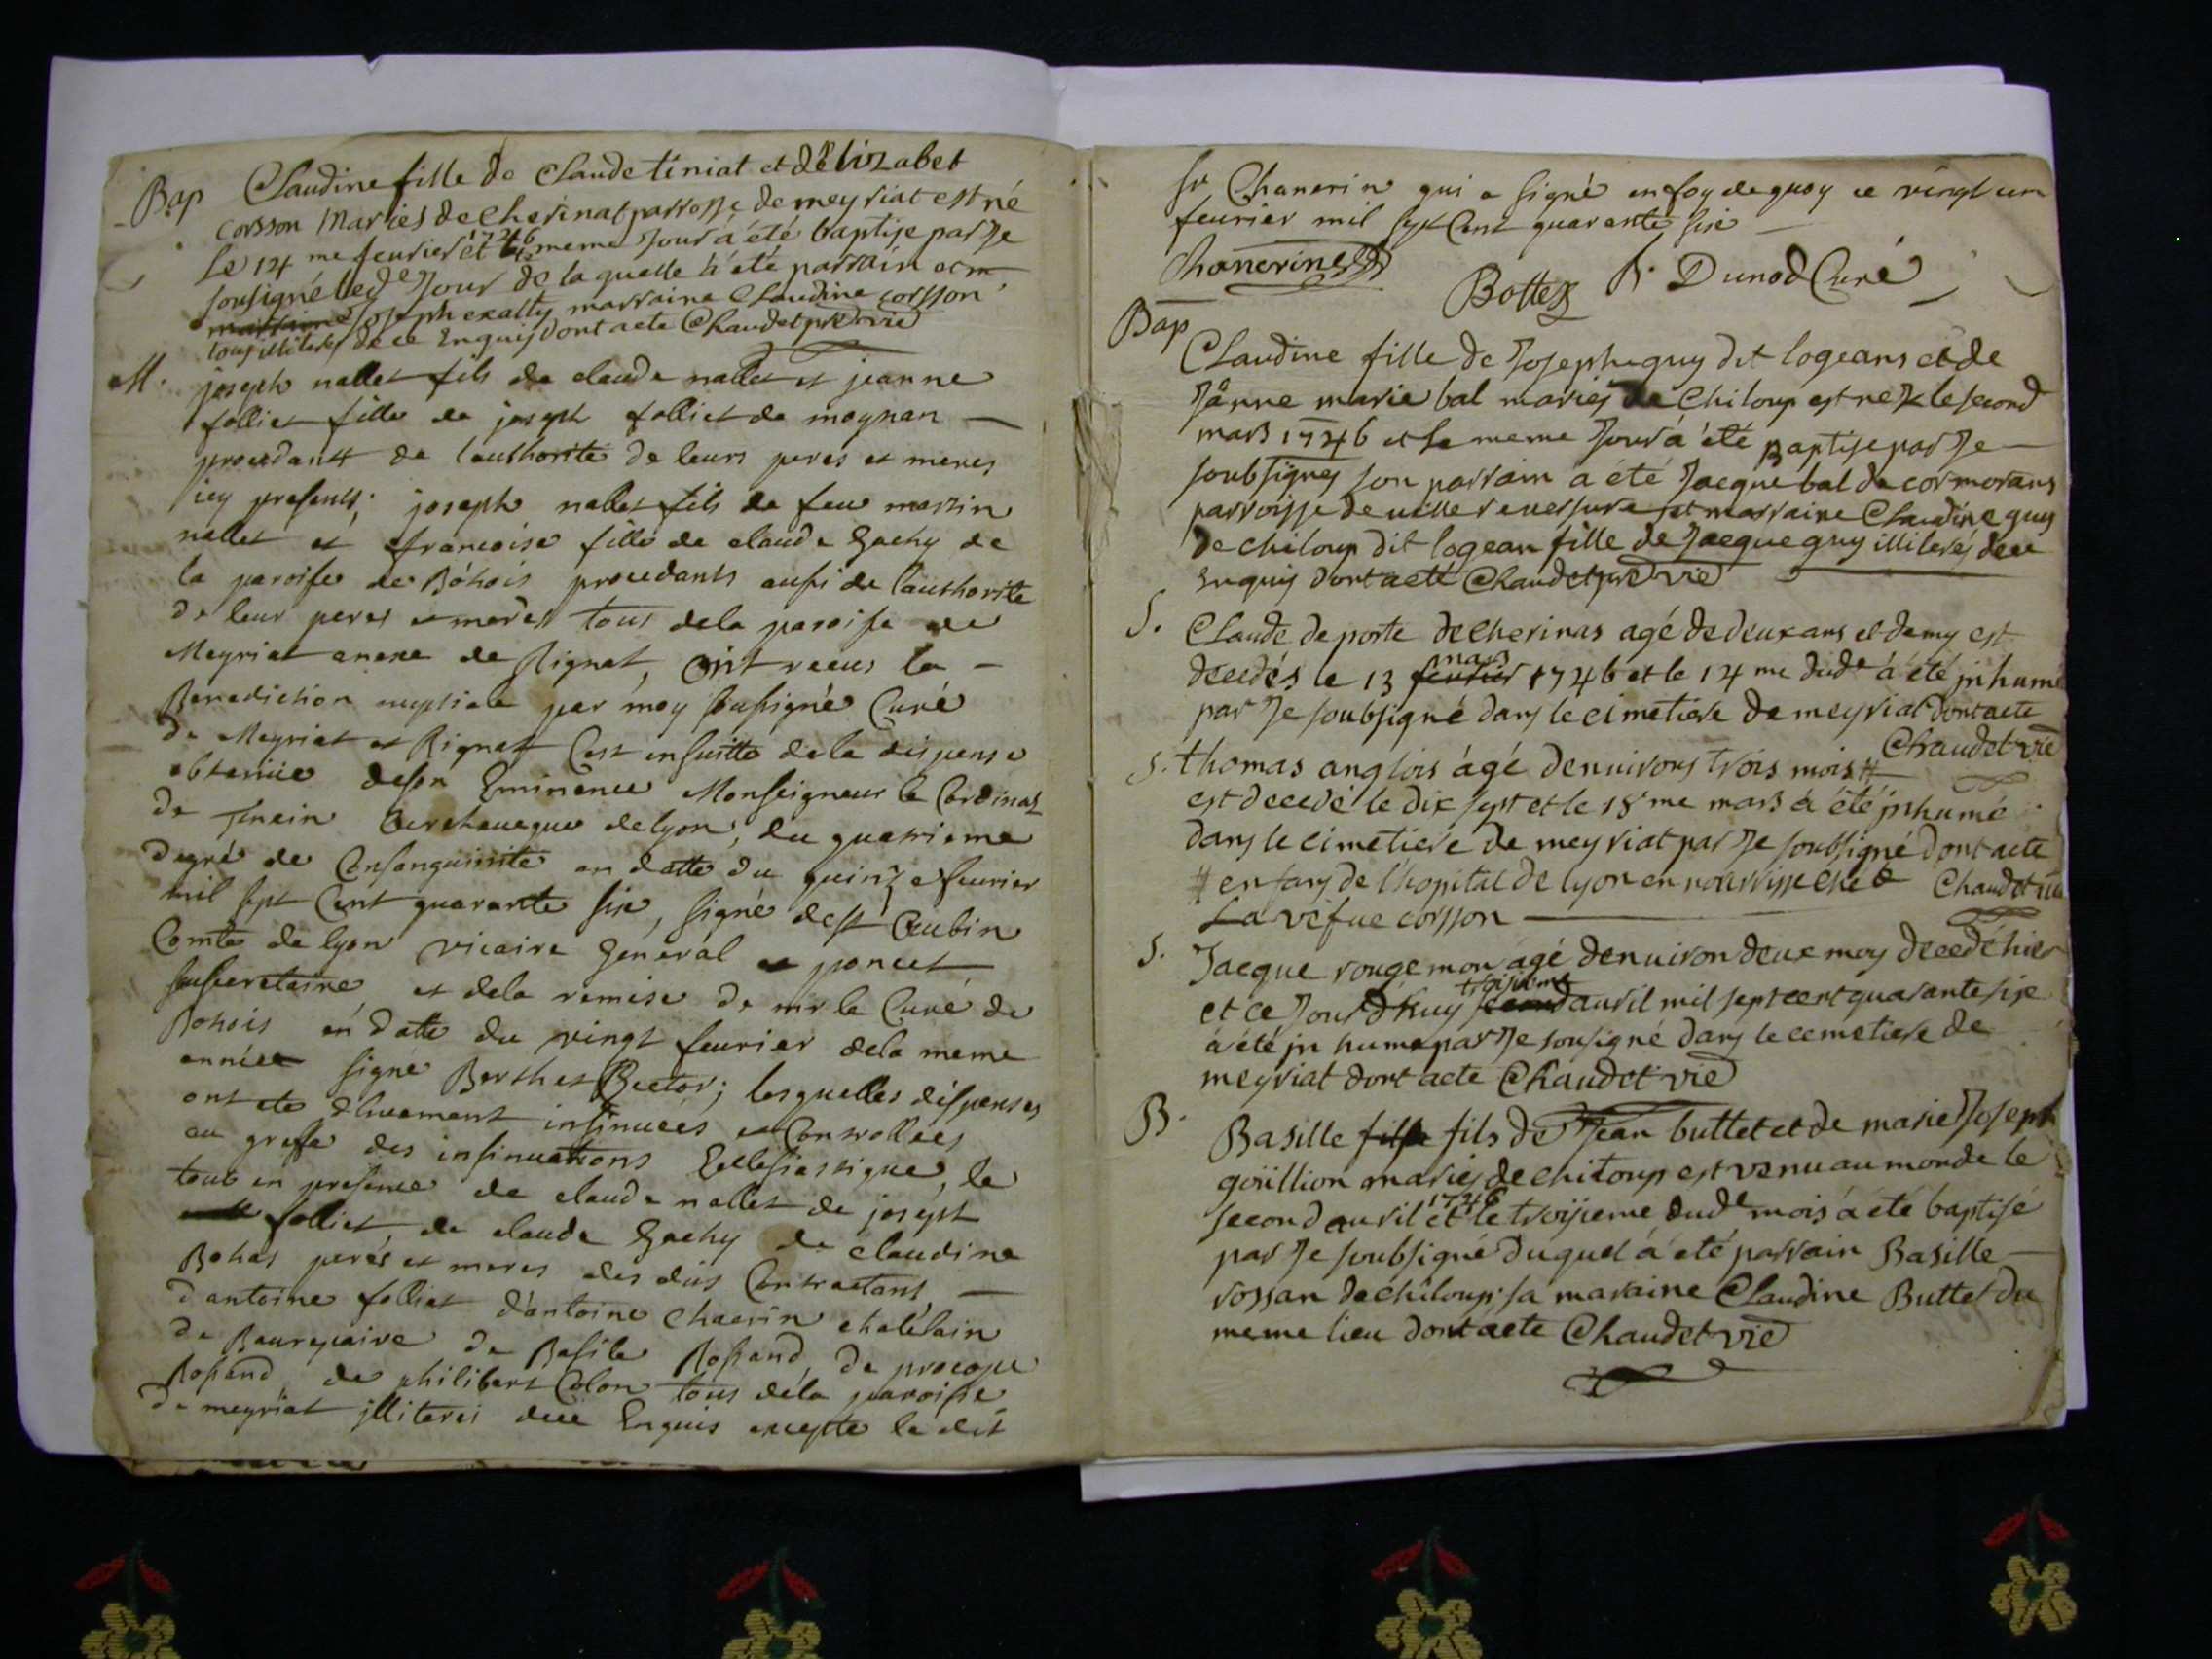 Bap Claudine fille de Claude tiniat et d'Elizabet
corsson Mariés de Cherinat parroisse de meyriat est né
Le 14 me feurier 1746 et le meme Jour a été baptisé par Je
sousigné ledt Jour de la quelle h'été parrain
marraine joseph exalty marraine Claudine corsson
tous illiterés de ce Enquis dont acte Chaudet pre vic
M. joseph nallet fils de claude nallet et jeanne
folliet fille de joseph folliet de moynan
procedants de l'authorité de leurs peres et meres
icy presents; joseph nallet fils de feu martin
nallet et francoise fille de claude Gachy de
la paroisse de Bohois procedants aussi de l'authorité
de leur peres et meres tous dela paroisse de
Meyriat anexe de Rignat, ont recus la
Benediction nuptiale par moy soussigné Curé
de Meyriat et Rignat C'est ensuitte dela dispense
obtenüe deson Eminence Monseigneur le Cardinal
de Tencin archeueque delyon, du quatrieme
degré de Consanguinité en datte du quinze feurier
mil sept Cent quarante six, signé dest Aubin
Comte de lyon vicaire General et poncet
sousecretaire et dela remise de mr le Curé de
Bohois en datte du vingt feurier dela meme
année signé Berthet Rector; lesquelles dispenses
ont ete düement insinuées et Controllées
au greffe des insinuations Ecclesiastique, le
tout en presence de claude nallet de joseph
folliet de claude Gachy de claudine
Bohas perés et meres des dits Contractants
d'antoine folliet d'antoine Chanerin chatelain
de Baurepaire de Basile Rossand, de procope
Rossand de philibert Colon tous déla paroisse
de meyriat illiterés dece Enquis excepté le dit
sr Chanerin qui a signé en foy de quoy ce vingt un
feurier mil sept Cent quarante six
Chanerin Bottex B. Dunod Curé
Bap
Claudine fille de Joseph guy dit logeans et de
Jeanne marie bal mariés de Chiloup est nez le second
mars 1746 et le meme Jour a été Baptisé par Je
soubsignes son parrain a été Jacque bal de cormorans
parroisse de uille reuersure et marraine Claudine guy
de chiloup dit logean fille de Jacque guy illiterés dece
Enquis dont acté Chaudet pre vic
S. Claude de porte de Cherinas agé de deux ans et demy est
decedés le 13 feurier mars 1746 et le 14 me dudt a été jnhumé
par Je soubsigné dans le cimetiere de meyriat dont acte
Chaudet vic
S. thomas anglois âgé denuirons trois mois #
est decedé le dix sept et le 18 me mars a été jnhumé
dans le cimetiere de meyriat par Je soubsigné dont acte
# enfans de l'hopital de lyon en nourrisse ché Chaudet vic
La véfue corsson
S. Jacque rougemon agé denuiron deux moy decedé hier
et ce Jourd'huy second troisieme auril mil sept cent quarante six
a été jnhumé par Je sousigné dans le cemetiere de
meyriat dont acte Chaudet vic
B. Basille fille fils de Jean buttet et de marie Joseph
goüillion mariés de chiloup est venu au monde le
second auril 1746 et le troisieme dudt mois a été baptisé
par Je soubsigné duquel a été parrain Basille
rossan de chiloup; sa maraine Claudine Buttet du
meme lieu dont acte Chaudet vic